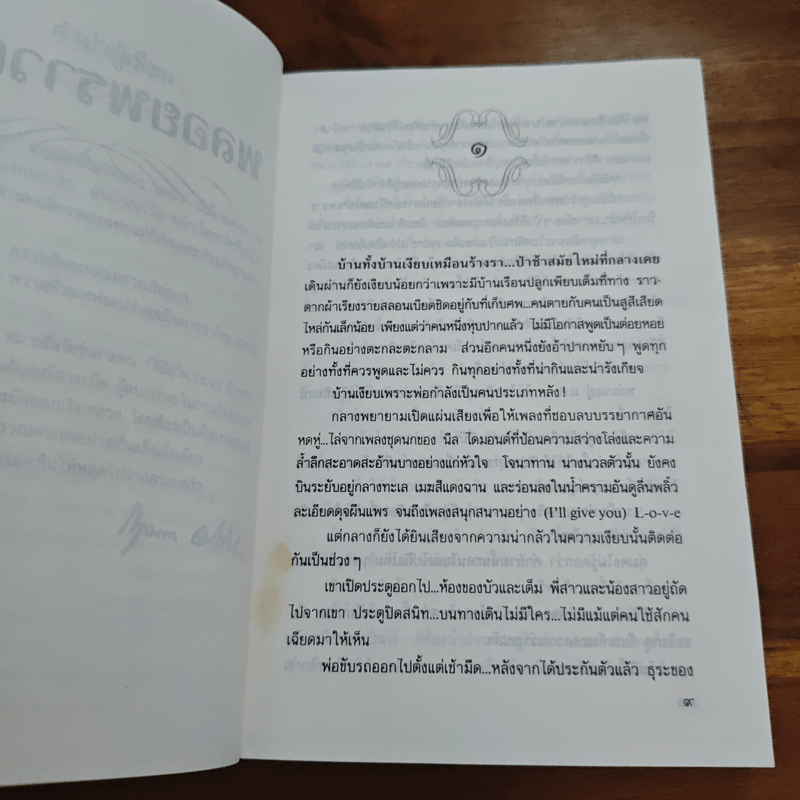 ๑
บ้านทั้งบ้านเงียบเหมือนร้างรา...ป่าช้าสมัยใหม่ที่กลางเคย
เดินผ่านก็ยังเงียบน้อยกว่าเพราะมีบ้านเรือนปลูกเพียบเต็มที่ทาง ราว
ตากผ้าเรียงรายสลอนเบียดชิดอยู่กับที่เก็บศพ...คนตายกับคนเป็นสูสีเสียด
ไหล่กันเล็กน้อย เพียงแต่ว่าคนหนึ่งหุบปากแล้ว ไม่มีโอกาสพูดเป็นต่อยหอย
หรือกินอย่างตะกละตะกลาม ส่วนอีกคนหนึ่งยังอ้าปากหยับๆ พูดทุก
อย่างทั้งที่ควรพูดและไม่ควร กินทุกอย่างทั้งที่น่ากินและน่ารังเกียจ
บ้านเงียบเพราะพ่อกำลังเป็นคนประเภทหลัง!
กลางพยายามเปิดแผ่นเสียงเพื่อให้เพลงที่ชอบลบบรรยากาศอัน
หดหู่...ไล่จากเพลงชุดนกของ นีล ไดมอนด์ที่ป้อนความสว่างโล่งและความ
ล้ำลึกสะอาดสะอ้านบางอย่างแก่หัวใจ โจนาทาน นางนวลตัวนั้น ยังคง
บินระยับอยู่กลางทะเล เมฆสีแดงฉาน และร่อนลงในน้ำครามอันดูลื่นพลิ้ว
ละเอียดดุจผืนแพร จนถึงเพลงสนุกสนานอย่าง (I'll give you) L-o-v-e
แต่กลางก็ยังได้ยินเสียงจากความน่ากลัวในความเงียบนั้นติดต่อ
กันเป็นช่วงๆ
เขาเปิดประตูออกไป...ห้องของบัวและเต็ม พี่สาวและน้องสาวอยู่ถัด
ไปจากเขา ประตูปิดสนิท...บนทางเดินไม่มีใคร...ไม่มีแม้แต่คนใช้สักคน
เฉียดมาให้เห็น
พ่อขับรถออกไปตั้งแต่เช้ามืด...หลังจากได้ประกันตัวแล้ว ธุระของ
๙